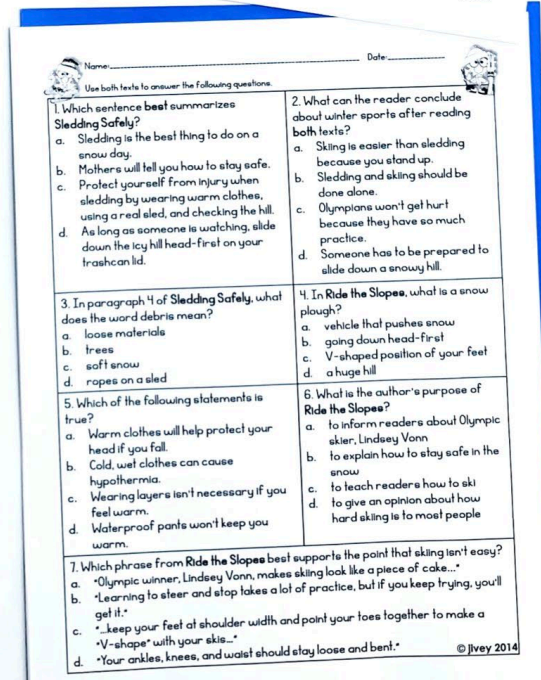 Name: Date:
Use both texts to answer the following questions.
1. Which sentence best summarizes
Sledding Safely?
a. Sledding is the best thing to do on a
snow day.
b. Mothers will tell you how to stay safe.
c. Protect yourself from injury when
sledding by wearing warm clothes,
using a real sled, and checking the hill.
d. As long as someone is watching, slide
down the icy hill head-first on your
trashcan lid.
2. What can the reader conclude
about winter sports after reading
both texts?
a. Skiing is easier than sledding
because you stand up.
b. Sledding and skiing should be
done alone.
c. Olympians won't get hurt
because they have so much
practice.
d. Someone has to be prepared to
slide down a snowy hill.
3. In paragraph 4 of Sledding Safely, what
does the word debris mean?
a. loose materials
b. trees
c. soft snow
d. ropes on a sled
4. In Ride the Slopes, what is a snow
plough?
a. vehicle that pushes snow
b. going down head-first
c. V-shaped position of your feet
d. a huge hill
5. Which of the following statements is
true?
a. Warm clothes will help protect your
head if you fall.
b. Cold, wet clothes can cause
hypothermia.
c. Wearing layers isn't necessary if you
feel warm.
d. Waterproof pants won't keep you
warm.
6. What is the author's purpose of
Ride the Slopes?
a. to inform readers about Olympic
skier, Lindsey Vonn
b. to explain how to stay safe in the
snow
c. to teach readers how to ski
d. to give an opinion about how
hard skiing is to most people
7. Which phrase from Ride the Slopes best supports the point that skiing isn't easy?
a. "Olympic winner, Lindsey Vonn, makes skiing look like a piece of cake..."
b. "Learning to steer and stop takes a lot of practice, but if you keep trying, you'll
get it."
c. "...keep your feet at shoulder width and point your toes together to make a
"V-shape" with your skis..."
d. "Your ankles, knees, and waist should stay loose and bent."
© Jivey 2014